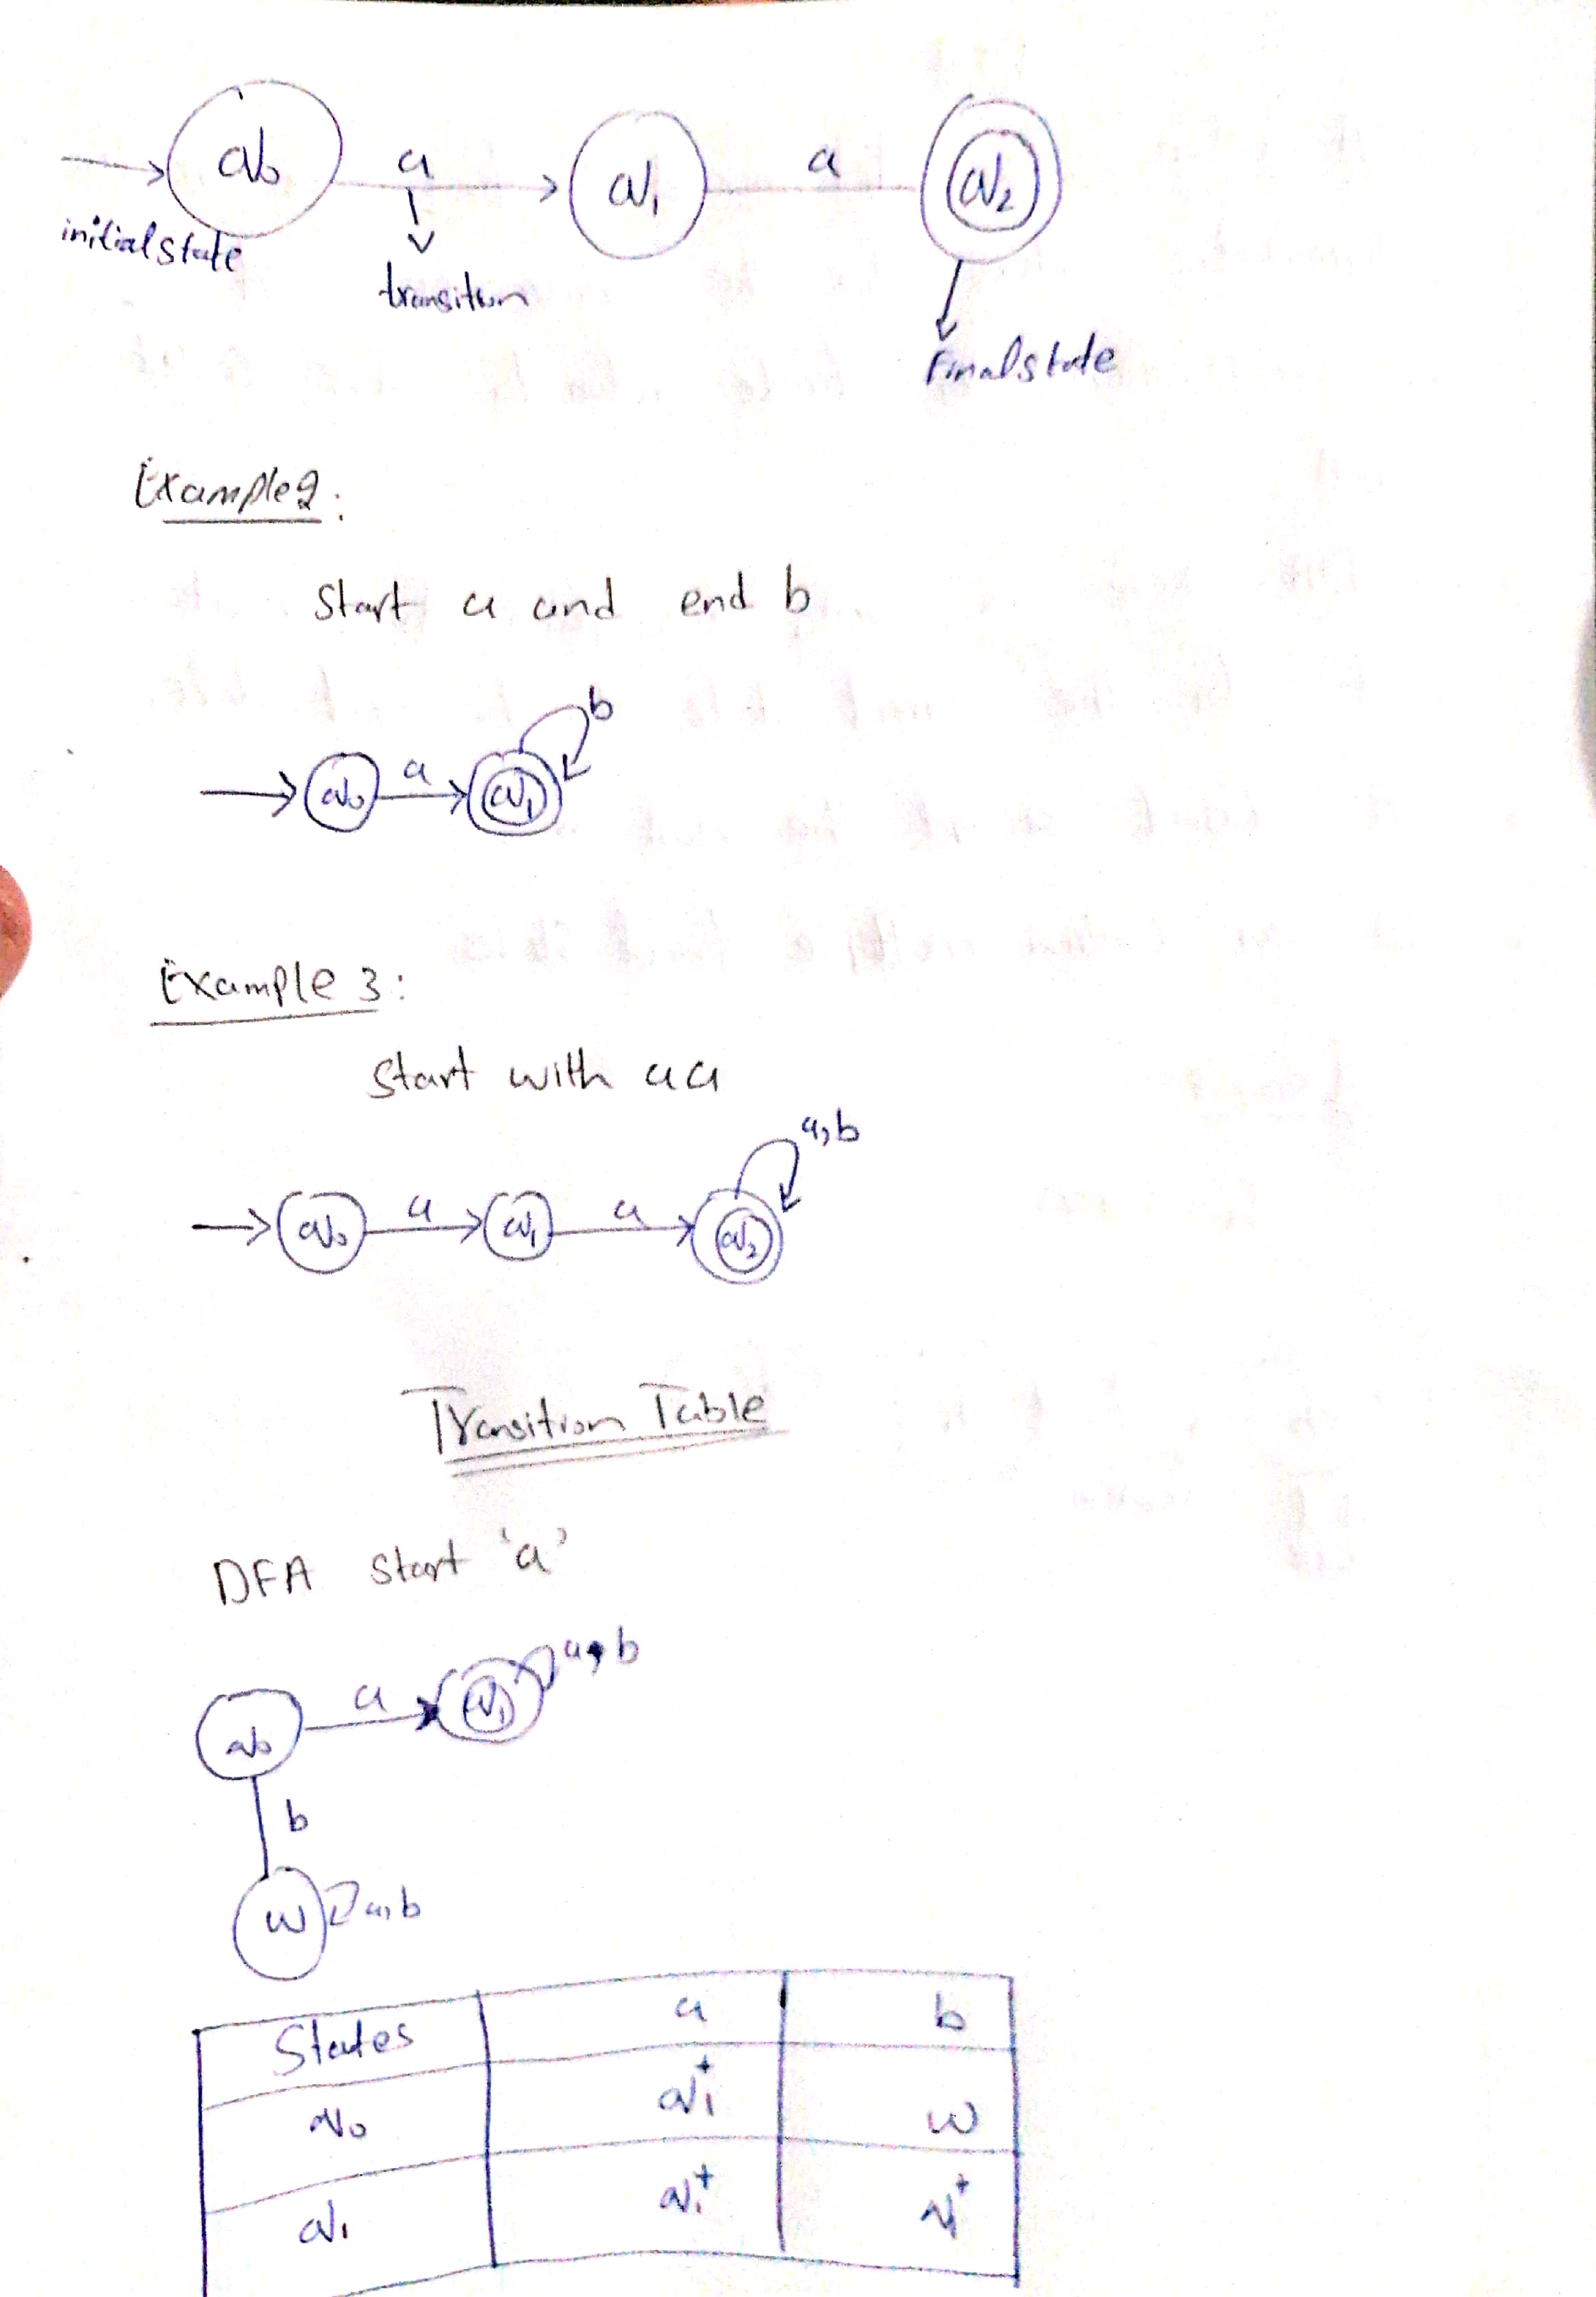 q0 a q1 a q2
initial state
transition
Final state
Example 2:
Start a and end b
b
q0 a q1
Example 3:
Start with aa
a,b
q0 a q1 a q2
Transition Table
DFA Start 'a'
a,b
q0 a q1
b
w a,b
States a b
q0 q1+ w
q1 q1+ q1+